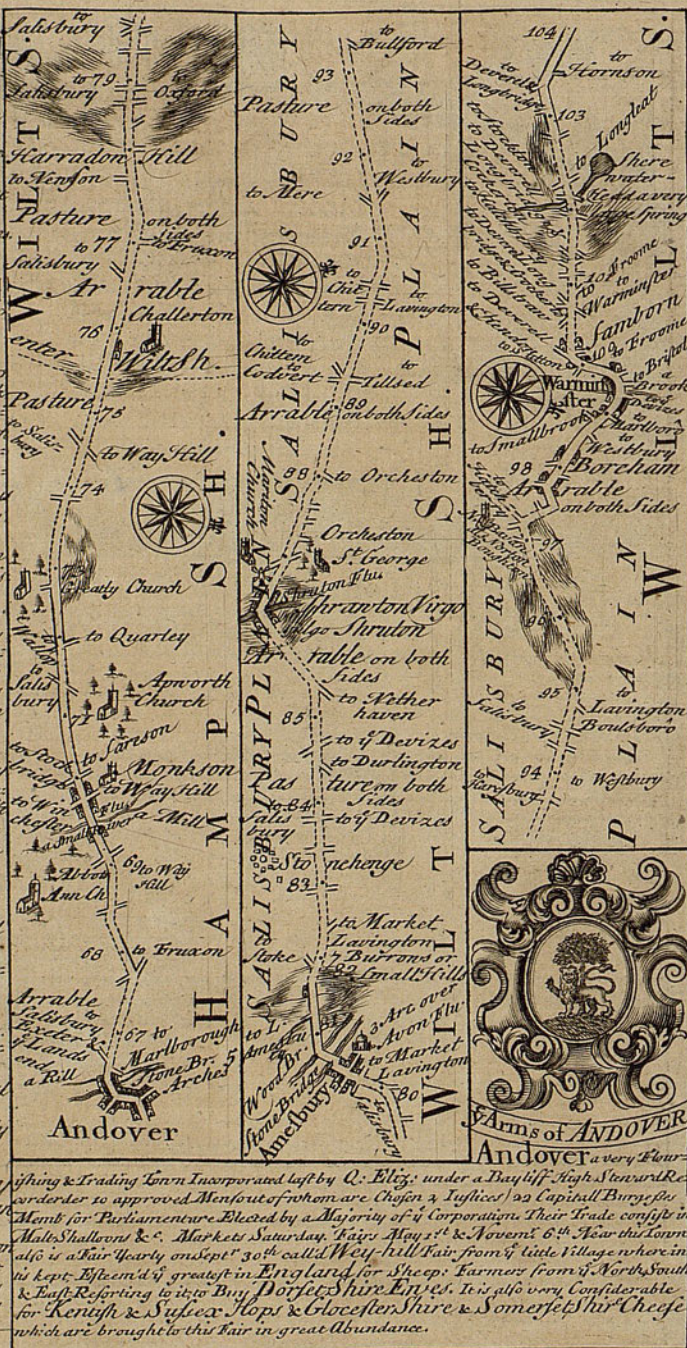 to
Salisbury
WILTS.
to 79
Salisbury
to
Oxford
Harradon Hill
to Nenson
Pasture on both
sides
to 77
to Fruxon
Salisbury
Ar rable
Challerton
76
enter
Wiltsh.
Pasture
75
to Salis-
bury
to Way Hill
74
Greatly Church
to Wallop
to Quarley
to
Salis
bury
Apworth
Church
71
to Sarson
to Stock
bridge
Monkson
to Way Hill
to Win
chester
Flu.
a Mill
a small
69 to Way
Hill
Abbots
Ann Ch
68
to Fruxon
Arrable
to
Salisbury
Exeter &
yͤ Lands
end
a Rill
67 to
Marlborough
Stone Br. 5
Arches
HAMPSH.
Andover
to
Bullford
93
Pasture on both
Sides
92
to
Westbury
to Mere
91
to
Chit
tern
to
Lavington
90
to
Chittem
to
Codvert
to
Tillsed
89
Arrable on both Sides
88
to Orcheston
Mariton
Church
Orcheston
Sᵗ. George
Shruton Flu.
Shrawton Virgo
lgo Shruton
Ar rable on both
Sides
to Nether
haven
85
to yͤ Devizes
to Durlington
Pas ture on both
Sides
to 84
Salis
bury
to yͤ Devizes
Sto nehenge
83
to Market
Lavington
to
Stoke
7 Burrows or
82 Small Hills
to L.
Amesbu
81
3 Arc over
Avon Flu.
Wood Br.
to Market
Lavington
Stone Bridge
Amesbury
80
to
Salisbury
SALISBURY PLAIN
WILTSH.
104
to
Hornson
to
Deverell
Longbridg
103
to Stockton
to Longleat
Shere
water-
head a very
large Spring
to Froome
to
Warminster
Samborn
to Froome
to Bristol
a
Brook
to yͤ
Devizes
Warmin
ster
to
Marlboro
to
Westbury
to Smallbrook
98
Boreham
Ar rable
on both Sides
97
96
95
to
Salisbury
to
Lavington
Boulsboro
94
to Westbury
to
Haresbury
SALISBURY PLAIN
WILTS.
yͤ Arms of ANDOVER
Andover a very Flour-
ishing & Trading Town Incorporated last by Q: Eliz: under a Bayliff High Steward Re-
corderder 10 approved Men fout of whom are Chosen 2 Iustices) 22 Capitall Burgesses
Memb for Parliament are Elected by a Majority of yͤ Corporation. Their Trade consists in
Malt Shalloons &c. Markets Saturday. Fairs May 1ˢᵗ & Novemʳ 6ᵗʰ Near this Town
also is a Fair Yearly on Septʳ 30ᵗʰ call'd Wey-hill Fair from yͤ little Village wherein
tis kept, Esteem'd yͤ greatest in England for Sheep: Farmers from yͤ North, South
& East Resorting to it to Buy Dorset Shire Ewes. It is also very Considerable
for Kentish & Sussex Hops & Glocester Shire & Somerset Shire Cheese
which are brought to this Fair in great Abundance.